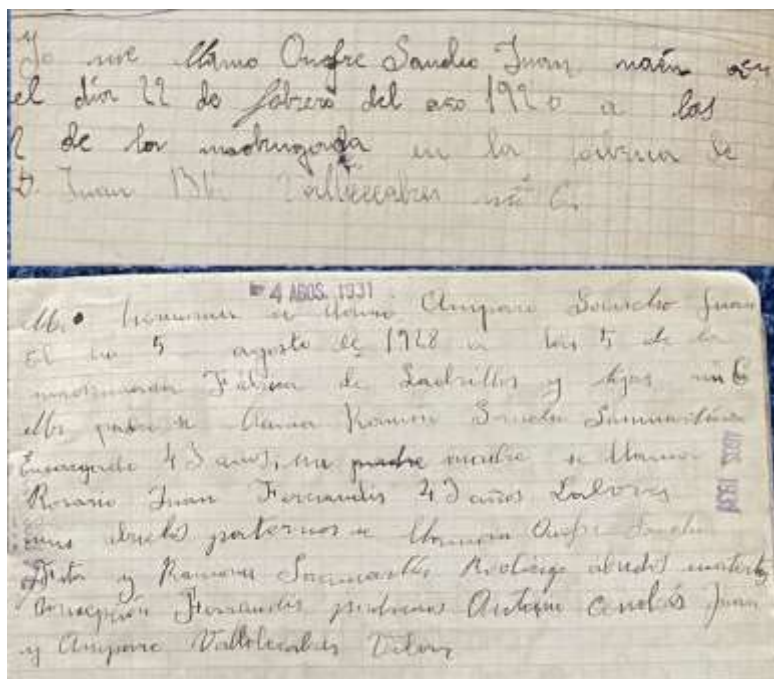 Yo me llamo Onofre Sancho Juan nacín
el día 22 de febrero del año 1920 a las
2 de la madrugada en la fábrica de
D. Juan Bta Valldecabres nº 6
4 AGOS. 1931
Mi hermana se llama Amparo Sancho Juan
El 5 agosto de 1928 a las 5 de la
madrugada Fábrica de Ladrillos y tejas nº 6
Mi padre se llama Ramón Sancho
Encargado 43 años, mi padre madre se llama
Rosario Juan Ferrandis 43 años Labores
mis abuelos paternos se llaman Onofre Sancho
y Ramona abuelos
Concepción Ferrandis padrinos Antonio Juan
y Amparo Valldecabres